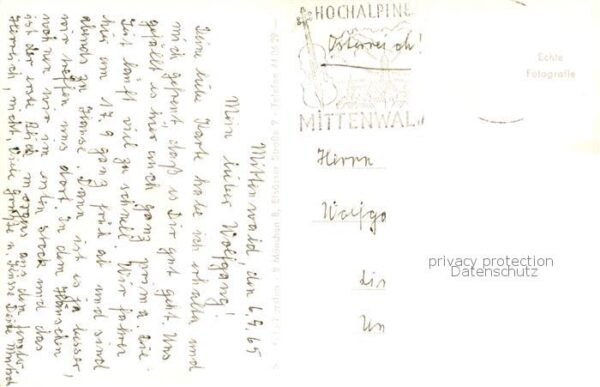 Mittenwald, den 6.9.65
Mein lieber Wolfgang!
Deine liebe Karte habe ich erhalten und
mich gefreut, daß es Dir gut geht. Uns
gefällt es hier auch ganz prima. Die
Zeit läuft viel zu schnell. Wir fahren
hier am 17.9 ganz früh ab und sind
abends zu Hause. Dann ist es ja besser,
wir treffen uns dort. In dem Häuschen
wohnen wir im ersten Stock und das
ist der erste Blick morgens aus dem Fenster
Herrlich, nicht, Viele Grüße u. Küsse Deine
München 8, Straße 9 · Telefon 41 06 29
HOCHALPINE
MITTENWALD
Österreich!
Echte
Fotografie
Herrn
Wolfga
privacy protection
Datenschutz